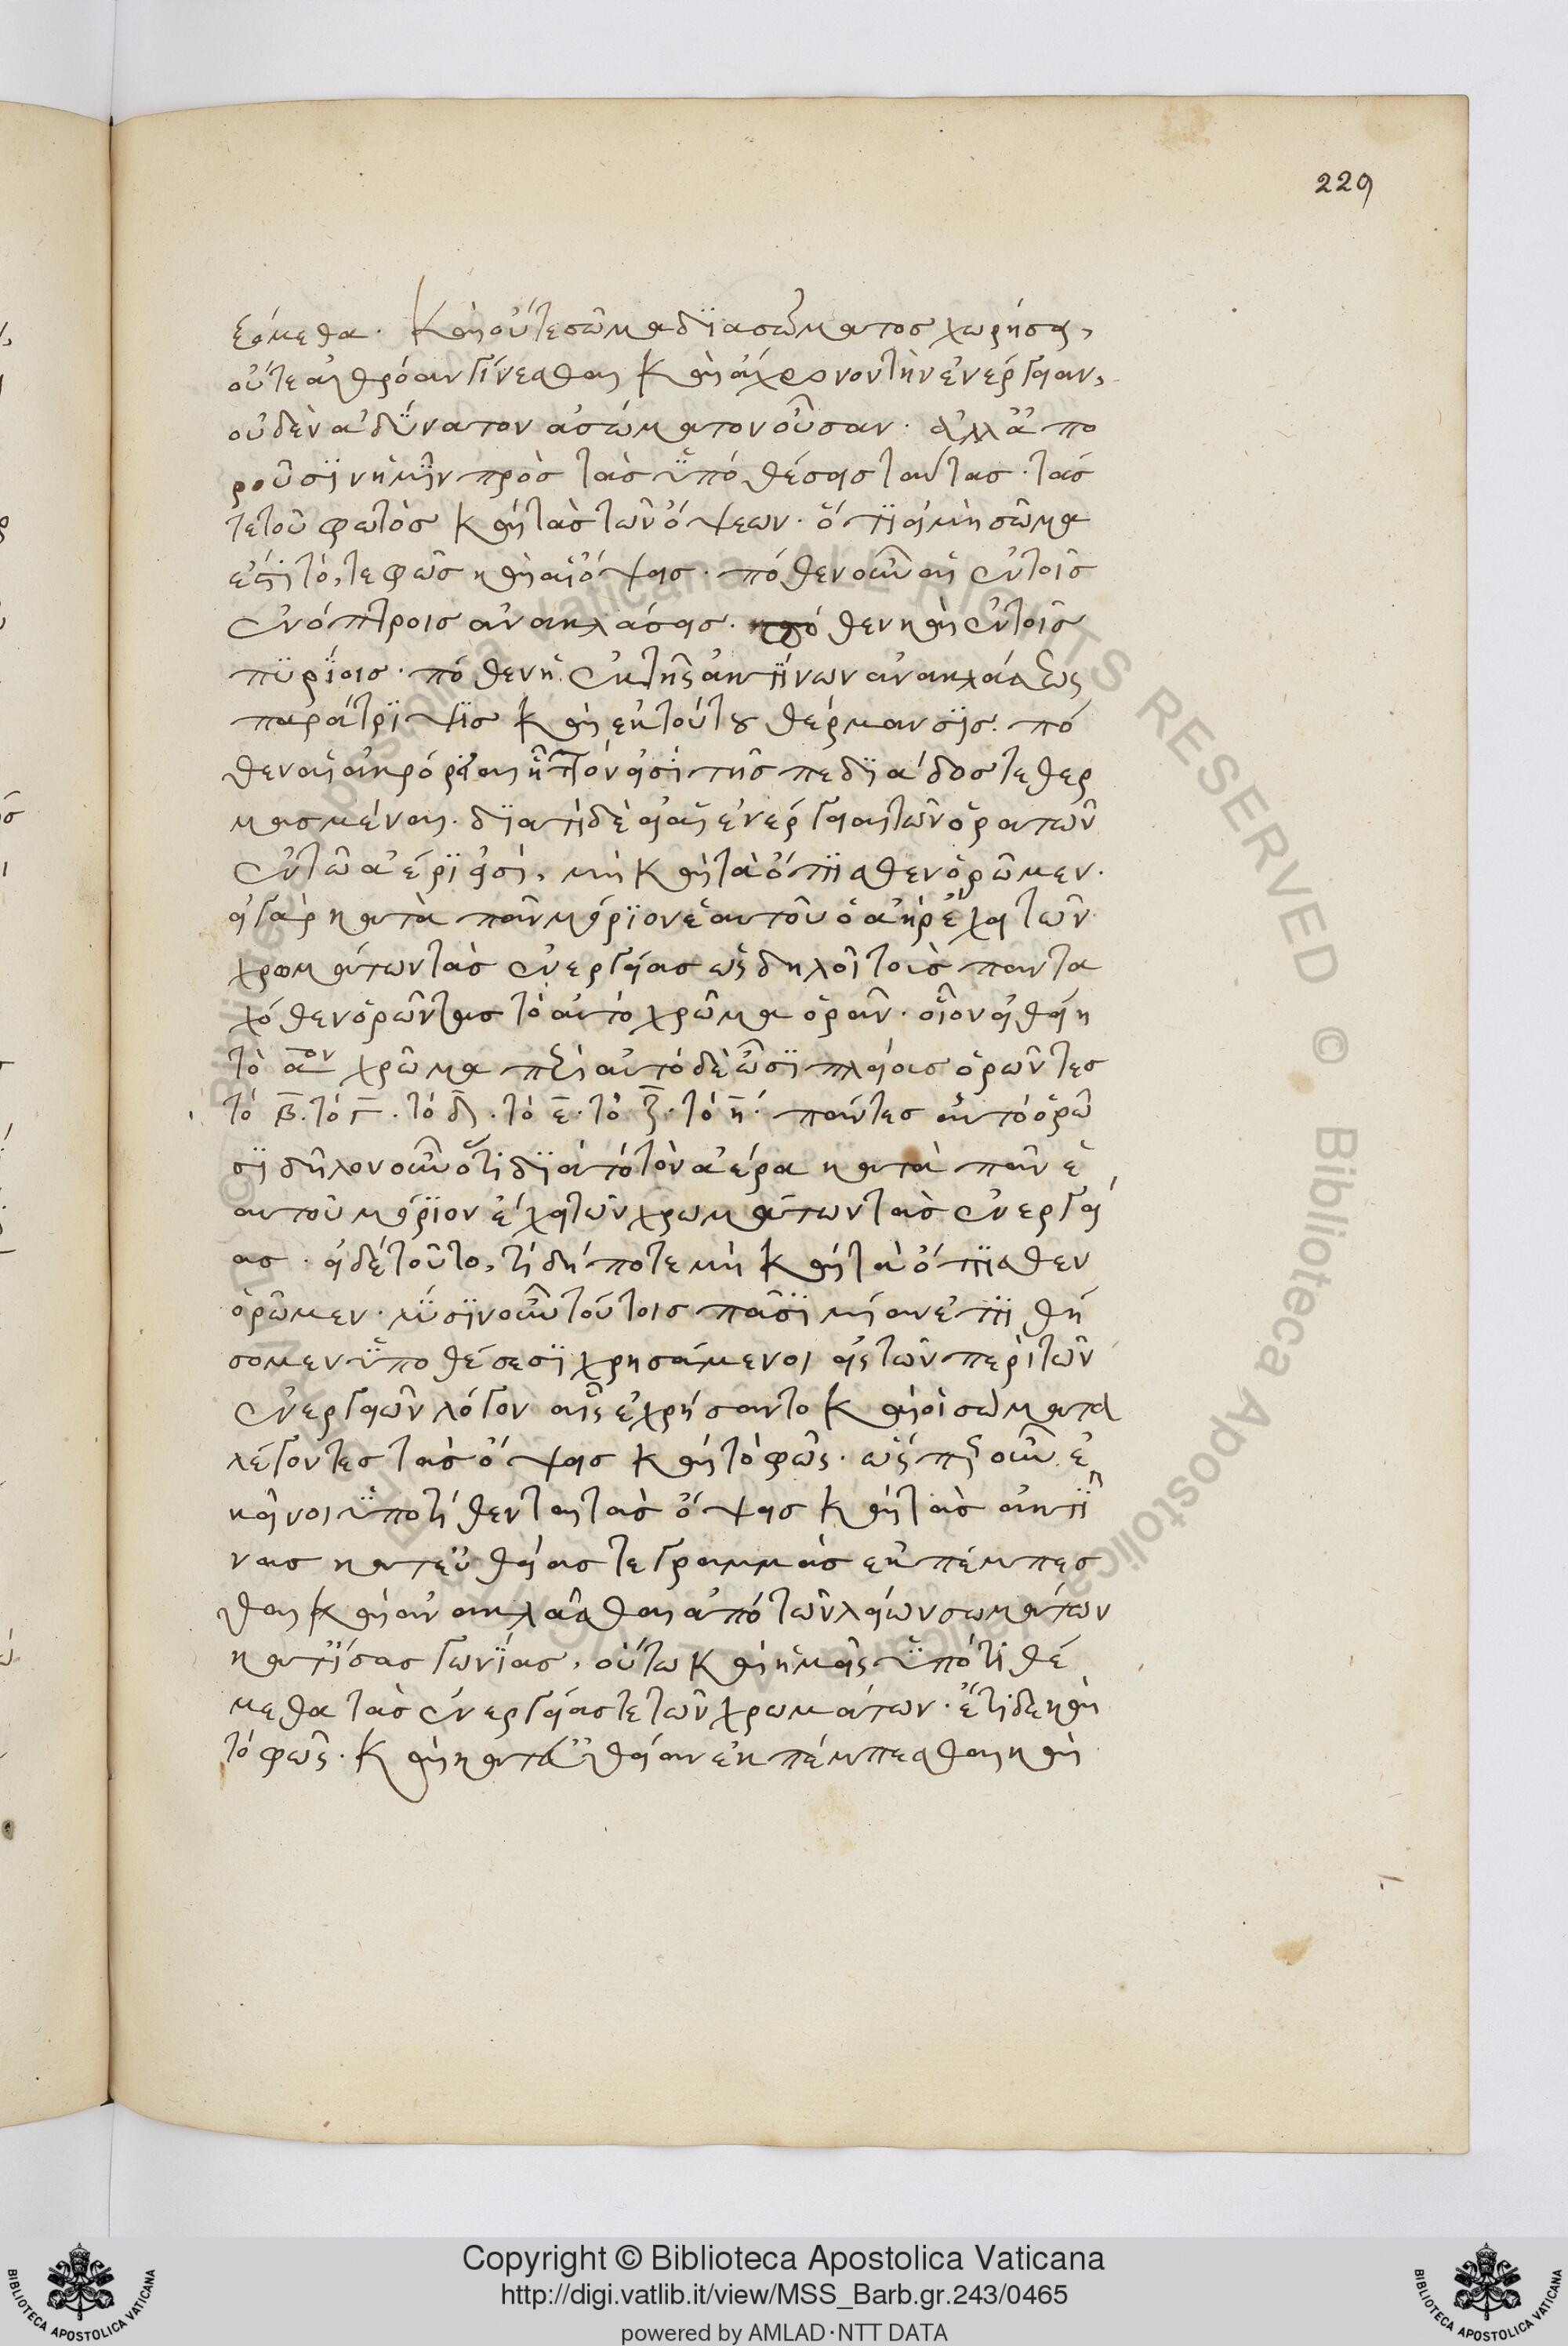 229
ξόμεθα. Καὶ οὔτε σῶμα διὰ σώματος χωρήσει,
οὔτε ἀθρόαν γίνεσθαι καὶ ἄχρονον τὴν ἐνέργειαν,
οὐδὲν ἀδύνατον ἀσώματον οὖσαν. ἀλλ' ἀπο
ροῦσιν ἡμῖν πρὸς τὰς ὑποθέσεις ταύτας. τάς
τε τοῦ φωτὸς καὶ τὰς τῶν ὄψεων. ὅτι εἰ μὴ σῶμα
ἐστὶ τό, τε φῶς καὶ αἱ ὄψεις. πόθεν οὖν αἱ ἐν τοῖς
ἐνόπτροις ἀνακλάσεις. πόθεν καὶ ἐν τοῖς
πυρίοις. πόθεν ἡ ἐκ τῆς ἀκτίνων ἀνακλάσεως
παράτριψις καὶ ἐκ τούτου θέρμανσις. πό
θεν αἱ ἀκρόρειαι ἧττόν εἰσι τῆς πεδιάδος τεθερ
μασμέναι. διατὶ δὲ εἰ αἱ ἐνέργειαι τῶν ὁρατῶν
ἐν τῶ ἀέρι εἰσί, μὴ καὶ τὰ ὄπισθεν ὁρῶμεν.
εἰ γὰρ κατὰ πᾶν μόριον ἑαυτοῦ ὁ ἀὴρ ἔχει τῶν
χρωμάτων τὰς ἐνεργείας ὡς δηλοῖ τοὺς παντα
χόθεν ὁρῶντας τὸ αὐτὸ χρῶμα ὁρᾶν. οἷον εἰ θείη
τὸ α̅ον χρῶμα περὶ αὐτὸ δὲ ὦσι πλείους ὁρῶντες
τό β̅. τό γ̅. τό δ̅. τό ε̅. τό ζ̅. τό η̅. πάντες αὐτὸ ὁρῶ
σι δῆλον οὖν ὅτι διὰ τὸ τὸν ἀέρα κατὰ πᾶν ἑ
αυτοῦ μόριον ἔχει τῶν χρωμάτων τὰς ἐνεργεί
ας. εἰ δὲ τοῦτο, τί δή ποτε μὴ καὶ τὰ ὄπισθεν
ὁρῶμεν. λύσιν οὖν τούτοις πᾶσι μίαν ἐπιθή
σομεν ὑποθέσεσι χρησάμενοι εἰς τὸν περὶ τῶν
ἐνεργειῶν λόγον αἷς ἐχρήσαντο καὶ οἱ σώματα
λέγοντες τὰς ὄψεις καὶ τὸ φῶς. ὥσπερ οὖν ἐ
κεῖνοι ὑποτίθενται τὰς ὄψεις καὶ τὰς ἀκτῖ
νας κατ' εὐθείας τε γραμμὰς ἐκπέμπεσ
θαι καὶ ἀνακλᾶσθαι ἀπὸ τῶν λείων σωμάτων
κατ' ἴσας γωνίας, οὕτω καὶ ἡμεῖς ὑποτιθέ
μεθα τὰς ἐνεργείας τε τῶν χρωμάτων. ἔτι δὲ καὶ
τὸ φῶς. καὶ κατ' εὐθεῖαν ἐκπέμπεσθαι καὶ
Copyright © Biblioteca Apostolica Vaticana
http://digi.vatlib.it/view/MSS_Barb.gr.243/0465
powered by AMLAD·NTT DATA
BIBLIOTECA APOSTOLICA VATICANA
BIBLIOTECA APOSTOLICA VATICANA